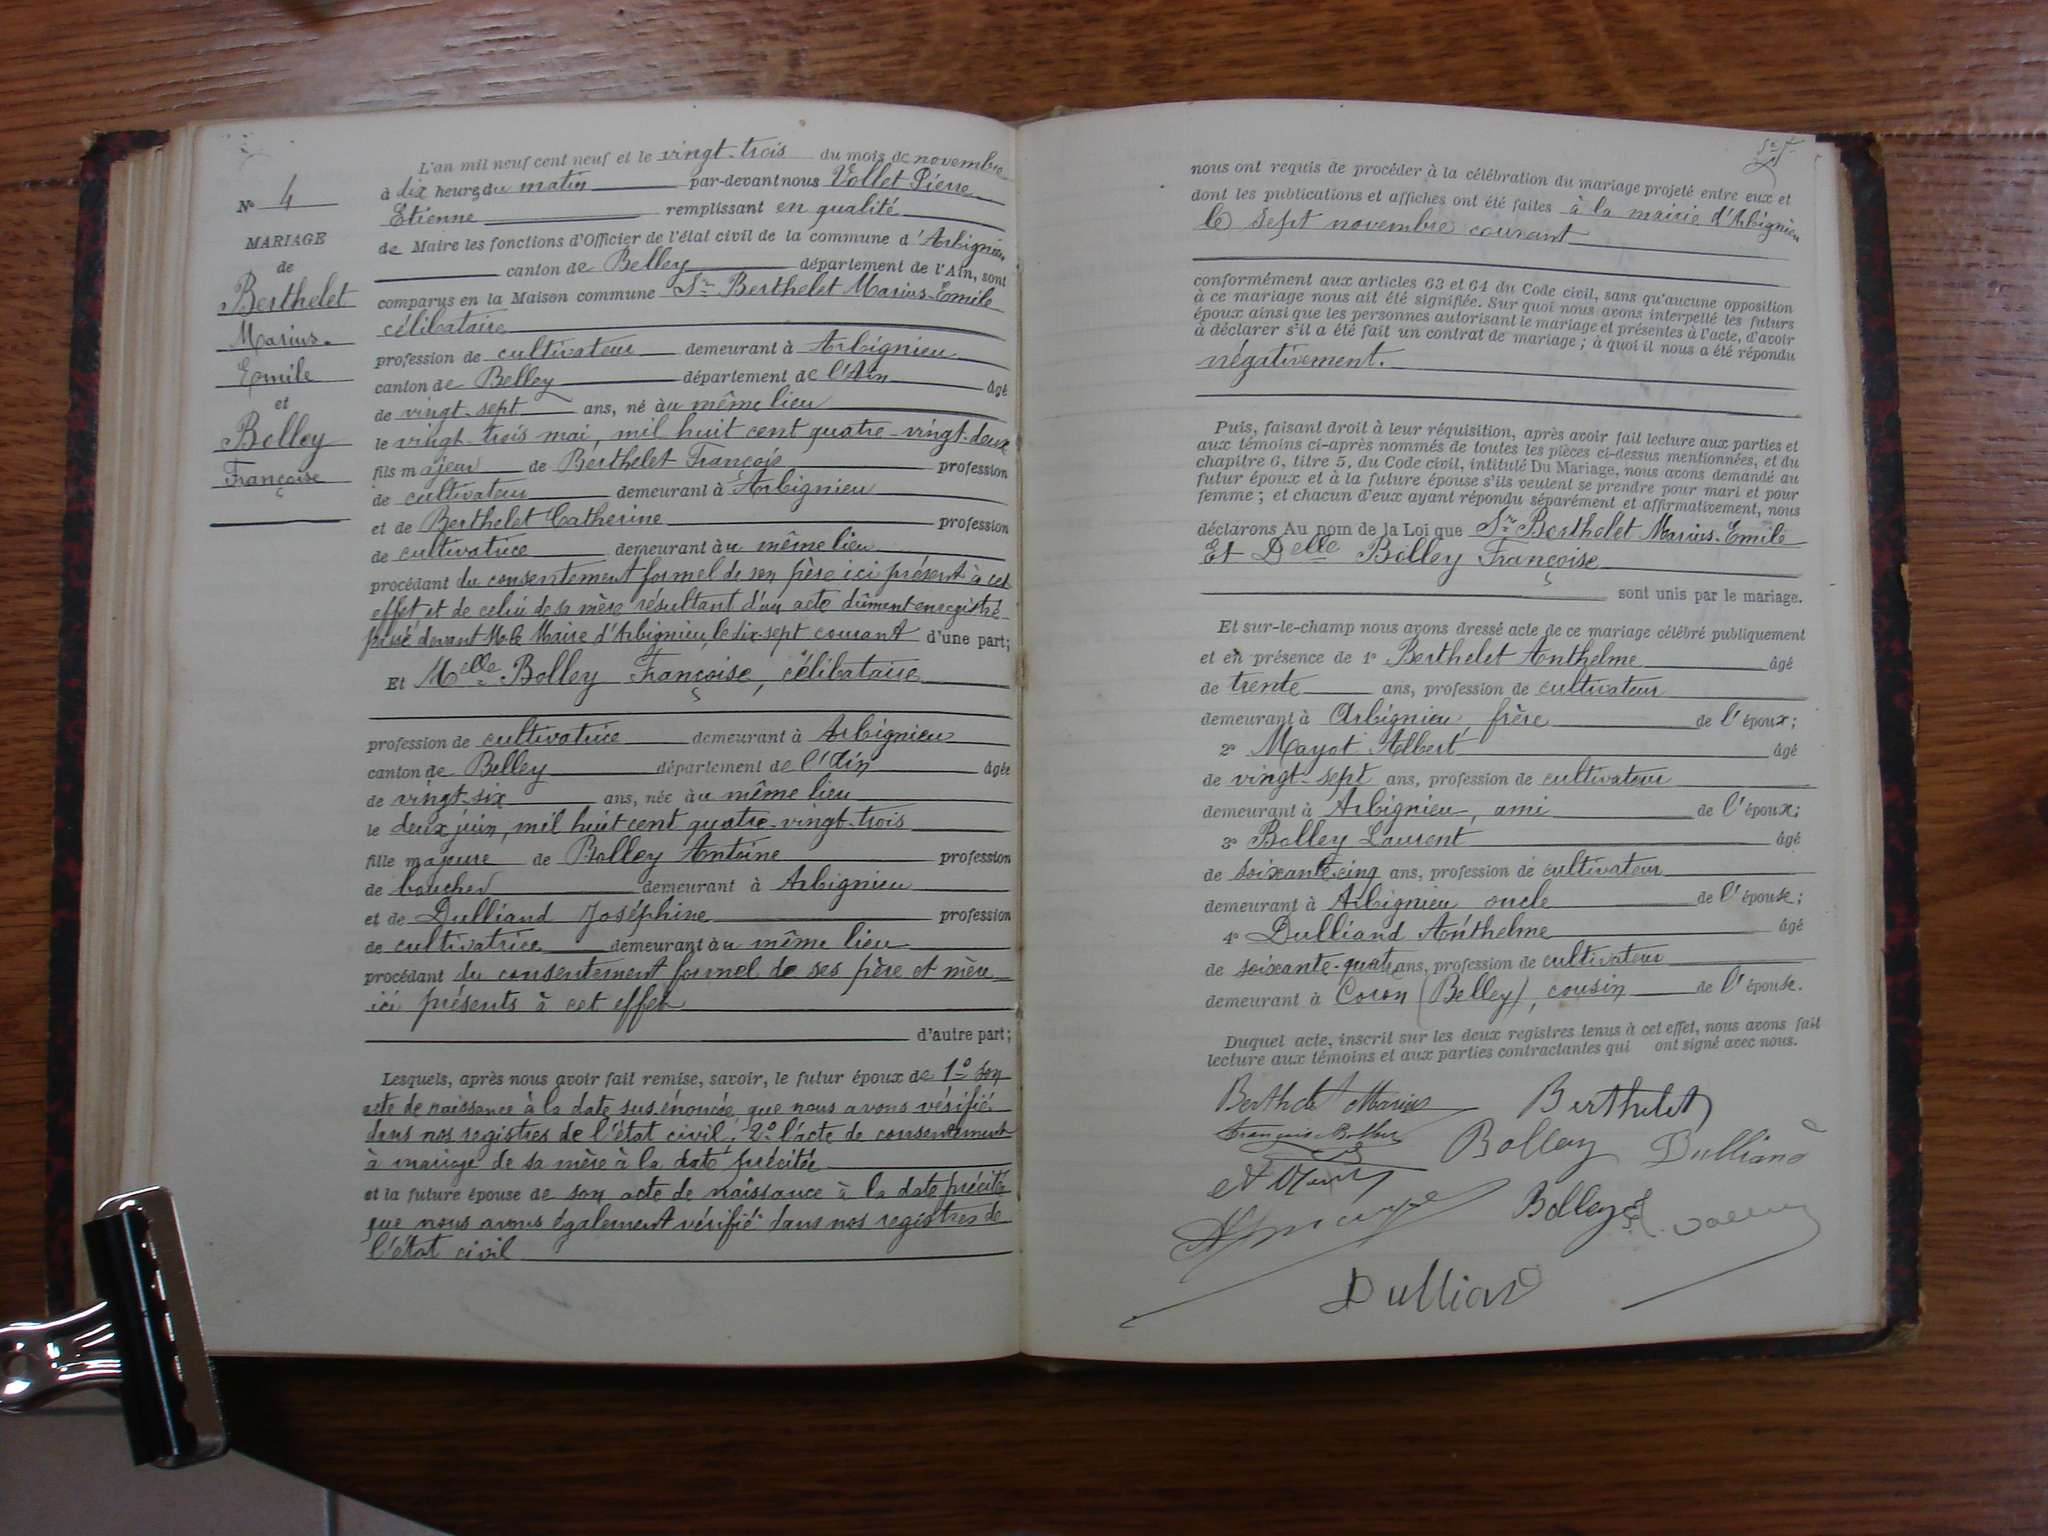 L'an mil neuf cent neuf et le vingt-trois du mois de novembre
à dix heures du matin par-devant nous Vollet Pierre
Etienne remplissant en qualité
de Maire les fonctions d'Officier de l'état civil de la commune d'Arbignieu
canton de Belley département de l'Ain, sont
comparus en la Maison commune Sr Berthelet Marius-Emile
célibataire
profession de cultivateur demeurant à Arbignieu
canton de Belley département de l'Ain âgé
de vingt-sept ans, né au même lieu
le vingt-trois mai, mil huit cent quatre-vingt-deux
fils majeur de Berthelet François profession
de cultivateur demeurant à Arbignieu
et de Berthelet Catherine profession
de cultivatrice demeurant au même lieu
procédant du consentement formel de son père ici présent à cet
effet et de celui de sa mère résultant d'un acte dûment enregistré
passé devant M. le Maire d'Arbignieu, le dix-sept courant d'une part;
Et Melle Bolley Françoise, célibataire
profession de cultivatrice demeurant à Arbignieu
canton de Belley département de l'Ain âgée
de vingt-six ans, née au même lieu
le deux juin, mil huit cent quatre-vingt-trois
fille majeure de Bolley Antoine profession
de boucher demeurant à Arbignieu
et de Dulliand Joséphine profession
de cultivatrice demeurant au même lieu
procédant du consentement formel de ses père et mère
ici présents à cet effet
d'autre part;
Lesquels, après nous avoir fait remise, savoir, le futur époux de 1o son
acte de naissance à la date sus énoncée, que nous avons vérifié
dans nos registres de l'état civil; 2o l'acte de consentement
à mariage de sa mère à la date précitée
et la future épouse de son acte de naissance à la date précitée
que nous avons également vérifié dans nos registres de
l'état civil
No 4
MARIAGE
de
Berthelet
Marius-
Emile
et
Bolley
Françoise
nous ont requis de procéder à la célébration du mariage projeté entre eux et
dont les publications et affiches ont été faites à la mairie d'Arbignieu
le sept novembre courant
conformément aux articles 63 et 64 du Code civil, sans qu'aucune opposition
à ce mariage nous ait été signifiée. Sur quoi nous avons interpellé les futurs
époux ainsi que les personnes autorisant le mariage et présentes à l'acte, d'avoir
à déclarer s'il a été fait un contrat de mariage ; à quoi il nous a été répondu
négativement.
Puis, faisant droit à leur réquisition, après avoir fait lecture aux parties et
aux témoins ci-après nommés de toutes les pièces ci-dessus mentionnées, et du
chapitre 6, titre 5, du Code civil, intitulé Du Mariage, nous avons demandé au
futur époux et à la future épouse s'ils veulent se prendre pour mari et pour
femme ; et chacun d'eux ayant répondu séparément et affirmativement, nous
déclarons Au nom de la Loi que Sr Berthelet Marius-Emile
Et Delle Bolley Françoise
sont unis par le mariage.
Et sur-le-champ nous avons dressé acte de ce mariage célébré publiquement
et en présence de 1o Berthelet Anthelme âgé
de trente ans, profession de cultivateur
demeurant à Arbignieu, frère de l'époux;
2o Mayot Albert âgé
de vingt-sept ans, profession de cultivateur
demeurant à Arbignieu, ami de l'époux;
3o Bolley Laurent âgé
de soixante-cinq ans, profession de cultivateur
demeurant à Arbignieu oncle de l'épouse;
4o Dulliand Anthelme âgé
de soixante-quatre ans, profession de cultivateur
demeurant à Coron (Belley), cousin de l'épouse.
Duquel acte, inscrit sur les deux registres tenus à cet effet, nous avons fait
lecture aux témoins et aux parties contractantes qui ont signé avec nous.
Berthelet Marius Berthelet
Françoise Bolley Bolley Dulliand
Bolley
Dulliand